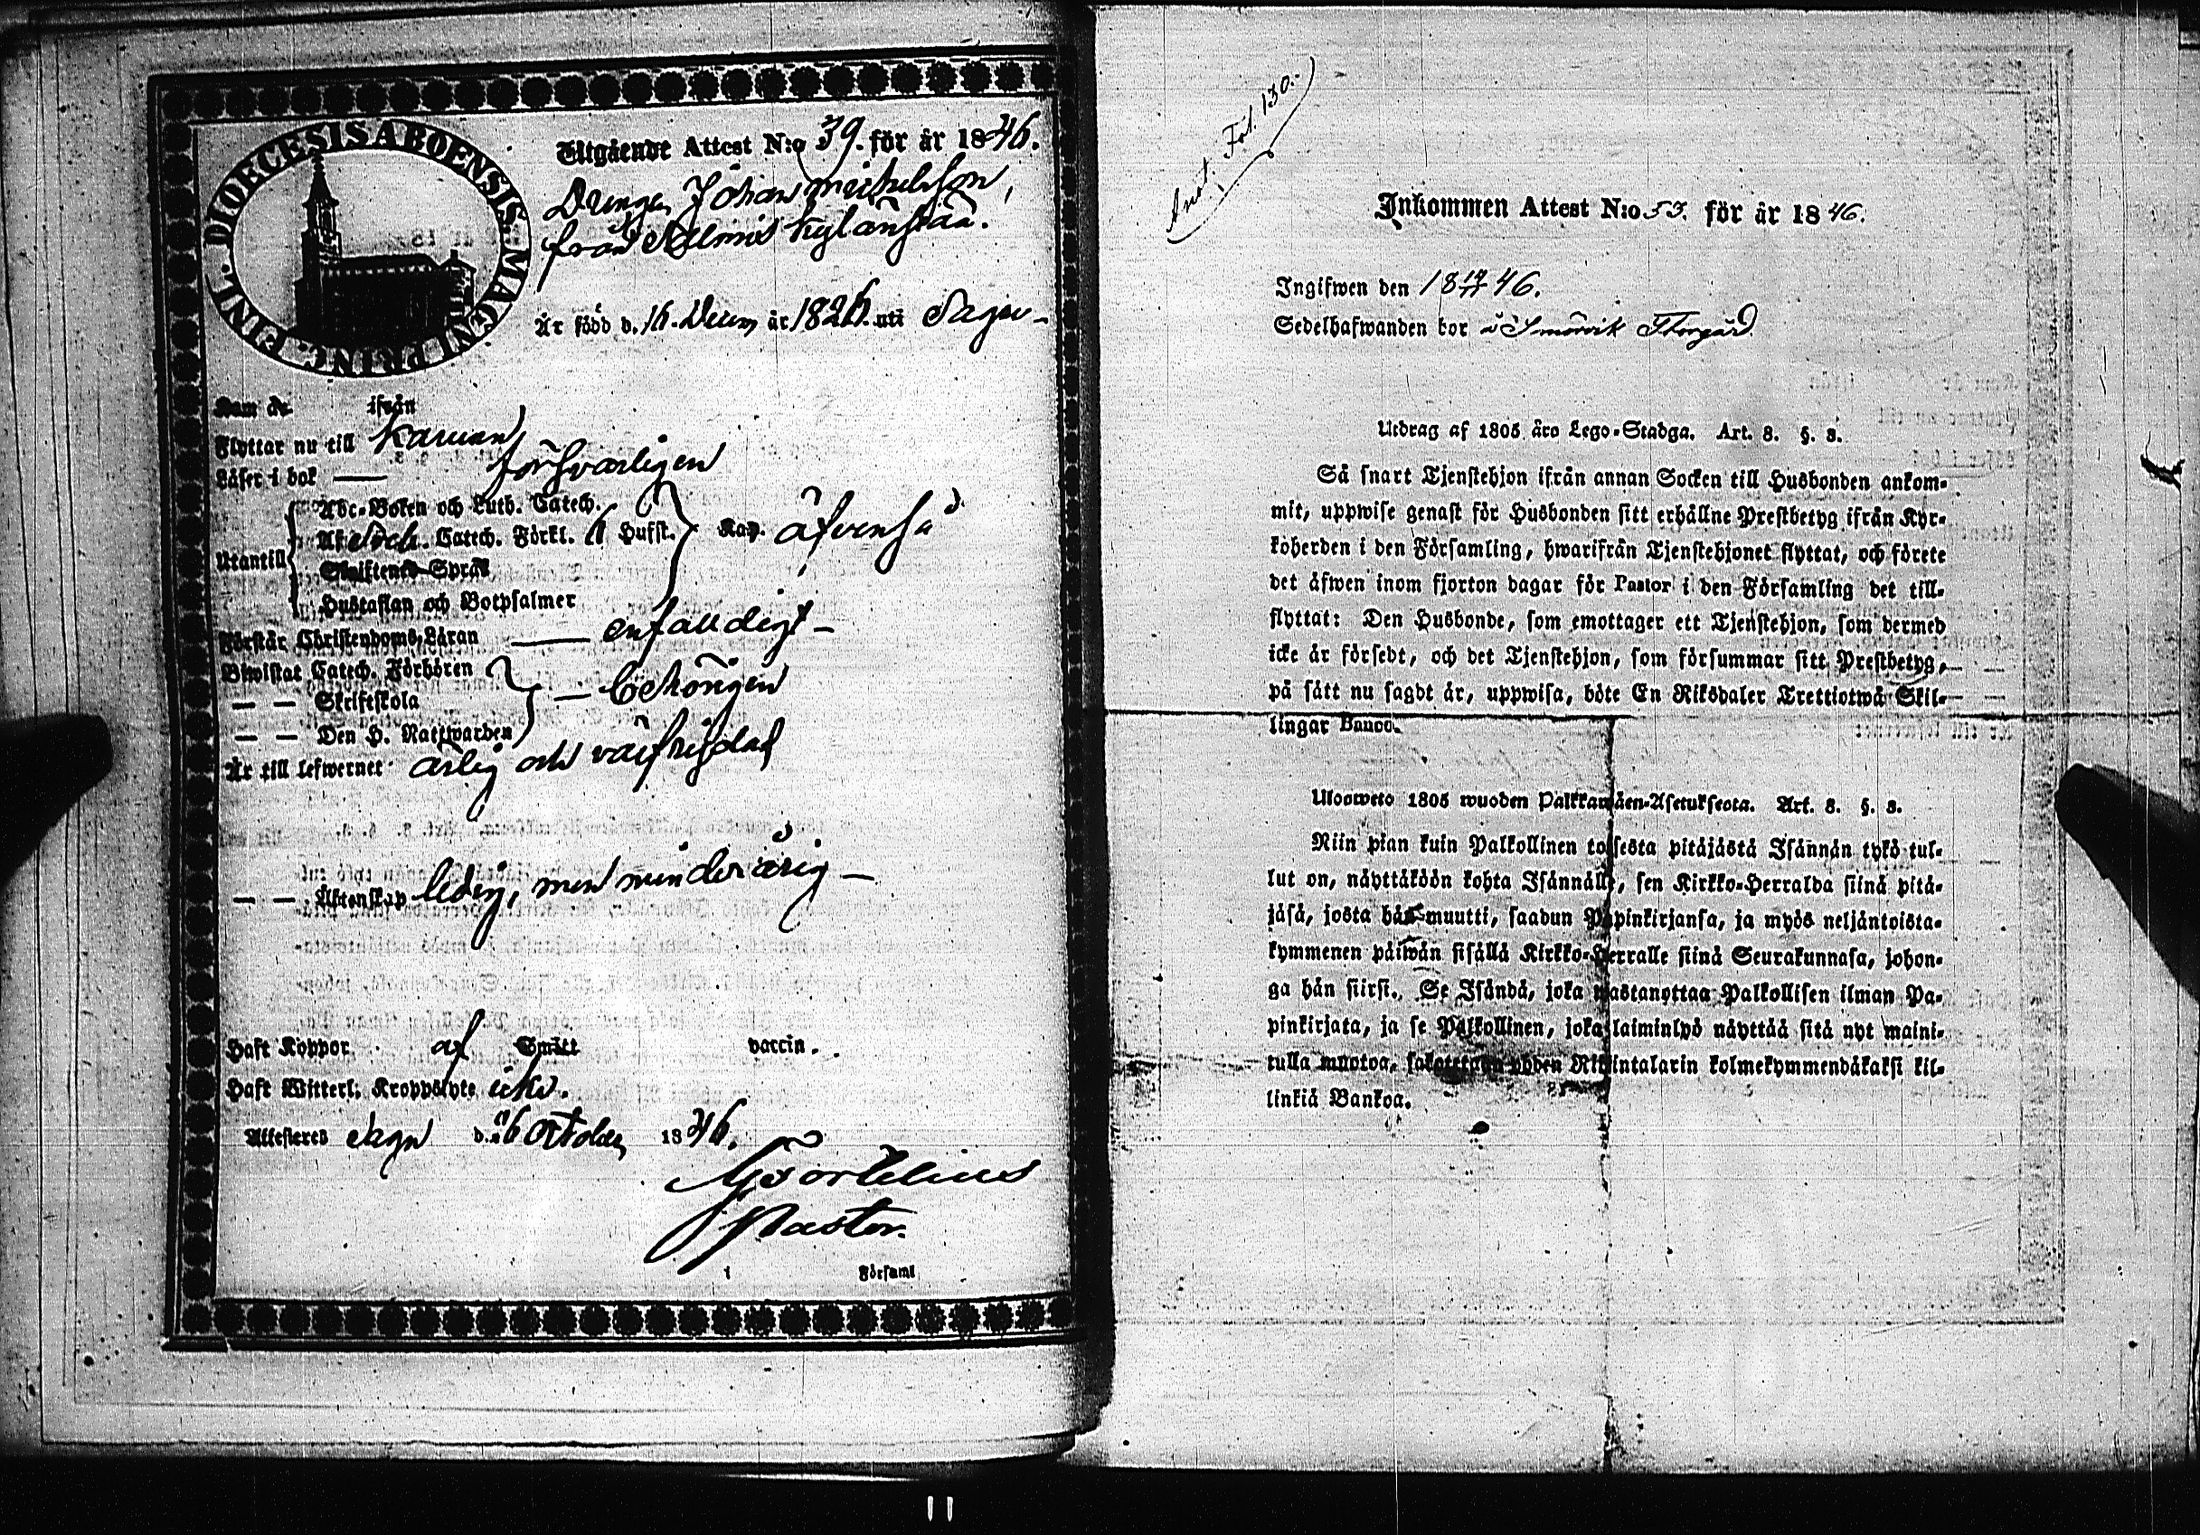 DIOECESIS ABOENSIS. MAGNI PRINC. FINL.
Utgående Attest N:o 39. för år 1846.
Drängen Johan Michelsson,
från
Är född d. 16. Decemb. år 1826. uti Sagu
Kom de ifrån
Flyttar nu till Karuna
Läser i bok — försvarligen
Utantill
Abc-Boken och Luth. Catech.
Af Catech. Förkl. 6 Hufst. Kap. äfvenså
Skriftenes Språk
Hustaflan och Botpsalmer
Förstår Christendoms-Läran — enfalldigt —
Biwistat Catech. Förhören
— — Skriftskola — behörigen
— — Den H. Nattwarden
Är till lefwernet ärlig och välfrejdad
— — Äktenskap ledig, men minderårig —
Haft Koppor af Smitt vaccin.
Haft Witterl. Kroppslyte icke.
Attesteres Sagu d. 26 October 1846.
Pastor.
i Församl
Fol. 130.
Inkommen Attest N:o 53. för år 1846.
Ingifwen den 18 46.
Sedelhafwanden bor å Smörvik Storgård
Utdrag af 1805 års Lego-Stadga. Art. 8. §. 8.
Så snart Tjenstehjon ifrån annan Socken till Husbonden ankom-
mit, uppwise genast för Husbonden sitt erhållne Prestbetyg ifrån Kyr-
koherden i den Församling, hwarifrån Tjenstehjonet flyttat, och förete
det äfwen inom fjorton dagar för Pastor i den Församling det till-
flyttat: Den Husbonde, som emottager ett Tjenstehjon, som dermed
icke är försedt, och det Tjenstehjon, som försummar sitt Prestbetyg,
på sätt nu sagdt är, uppwisa, böte En Riksdaler Trettiotwå Skil-
lingar Banco.
Ulosweto 1805 wuoden Palkkawäen-Asetuksesta. Art. 8. §. 8.
Niin pian kuin Palkollinen toisesta pitäjästä Isännän tykö tul-
lut on, näyttäköön kohta Isännälle, sen Kirkko-Herralda siinä pitä-
jäsä, josta hän muutti, saadun Papinkirjansa, ja myös neljäntoista-
kymmenen päiwän sisällä Kirkko-Herralle siinä Seurakunnasa, johon-
ga hän siirsi. Se Isändä, joka wastanottaa Palkollisen ilman Pa-
pinkirjata, ja se Palkollinen, joka laiminlyö näyttää sitä nyt maini-
tulla muotoa, sakotetaan yhden Riksintalarin kolmekymmendäkaksi kil-
linkiä Bankoa.